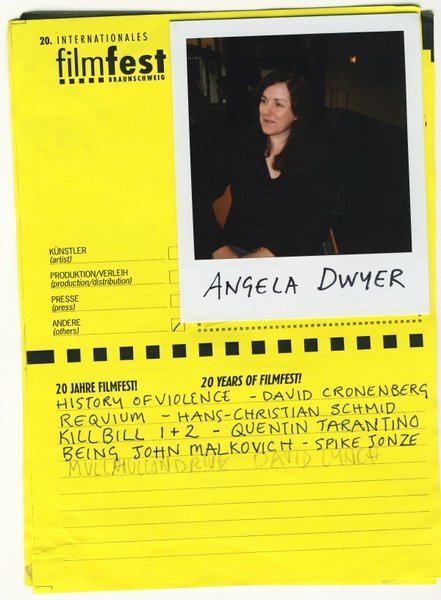 20. INTERNATIONALES
filmfest
BRAUNSCHWEIG
ANGELA DWYER
KÜNSTLER
(artist)
PRODUKTION/VERLEIH
(production/distribution)
PRESSE
(press)
ANDERE
(others)
20 JAHRE FILMFEST! 20 YEARS OF FILMFEST!
HISTORY OF VIOLENCE - DAVID CRONENBERG
REQUIUM - HANS-CHRISTIAN SCHMID
KILL BILL 1+2 - QUENTIN TARANTINO
BEING JOHN MALKOVICH - SPIKE JONZE
DRIVE DAVID LYNCH